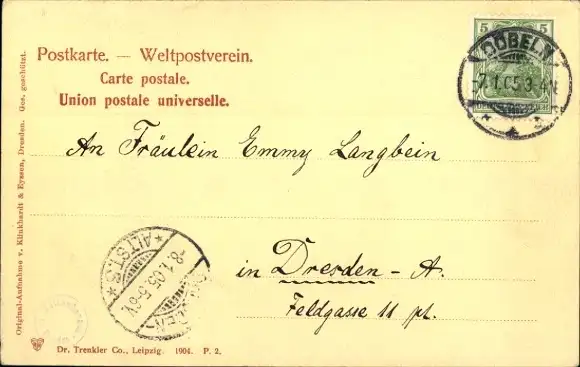 Postkarte. — Weltpostverein.
Carte postale.
Union postale universelle.
5 5
DÖBELN
7.1.05.3-4N
An Fräulein Emmy Langbein
in Dresden - A.
Feldgasse 11 pt.
ALTST.
8.1.05.5-6V.
Original-Aufnahme v. Klinkhardt & Eyssen, Dresden. Ges. geschützt.
Dr. Trenkler Co., Leipzig. 1904. P. 2.